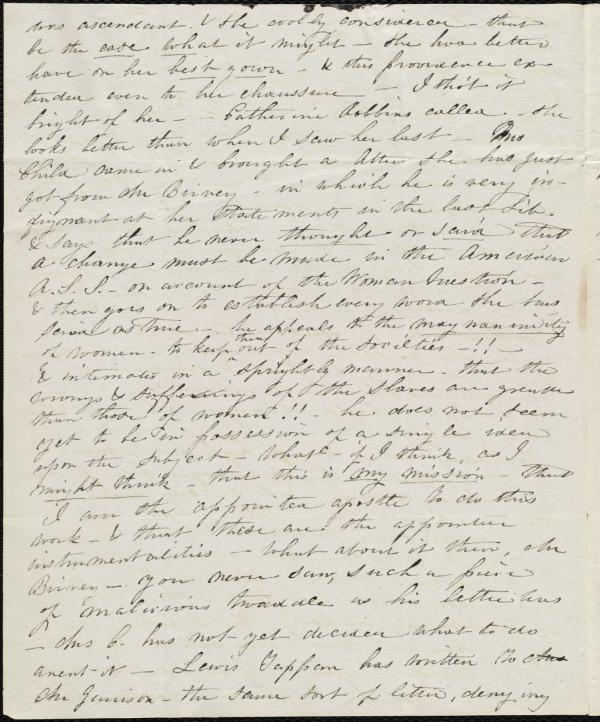 was ascendant. & she coolly considered - that
be the case what it might - she had better
have on her best gown - & this providence ex-
tended even to her chaussure - I tho't it
bright of her - - Catherine Robbins called. She
looks better than when I saw her last - Mrs
Child came in & brought a letter she has just
got from Mr Birney - in which he is very in-
dignant at her statements in the last Lib.
& says that he never thought or said that
a change must be made in the American
A.S.S. - on account of the Woman Question -
& then goes on to establish every word she has
said as true - he appeals to the magnanimity
of women - to keep them out of the societies -!! -
& intimates in a sprightly manner - that the
wrongs & sufferings of the slaves are greater
than those of women!! - he does not seem
yet to be in possession of a single idea
upon the subject - What - if I think, as I
might think - that this is my mission - that
I am the appointed apostle to do this
work - & that these are the appointed
instrumentalities - what about it then, Mr
Birney - you never saw, such a piece
of malicious twaddle as his letter was
- Mrs C. has not yet decided what to do
anent it - Lewis Tappan has written to
Mr Garrison - the same sort of letter, denying